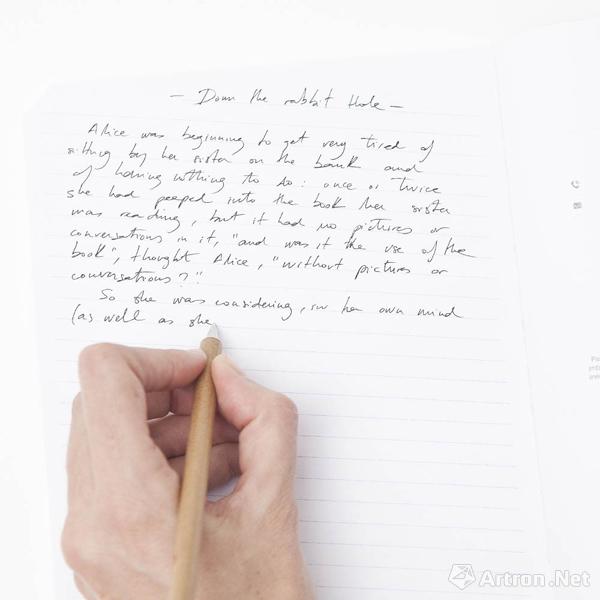 — Down the rabbit hole —
Alice was beginning to get very tired of
sitting by her sister on the bank and
of having nothing to do: once or twice
she had peeped into the book her sister
was reading, but it had no pictures or
conversations in it, "and was it the use of the
book", thought Alice, "without pictures or
conversations?"
So she was considering, in her own mind
(as well as she
Artron.Net